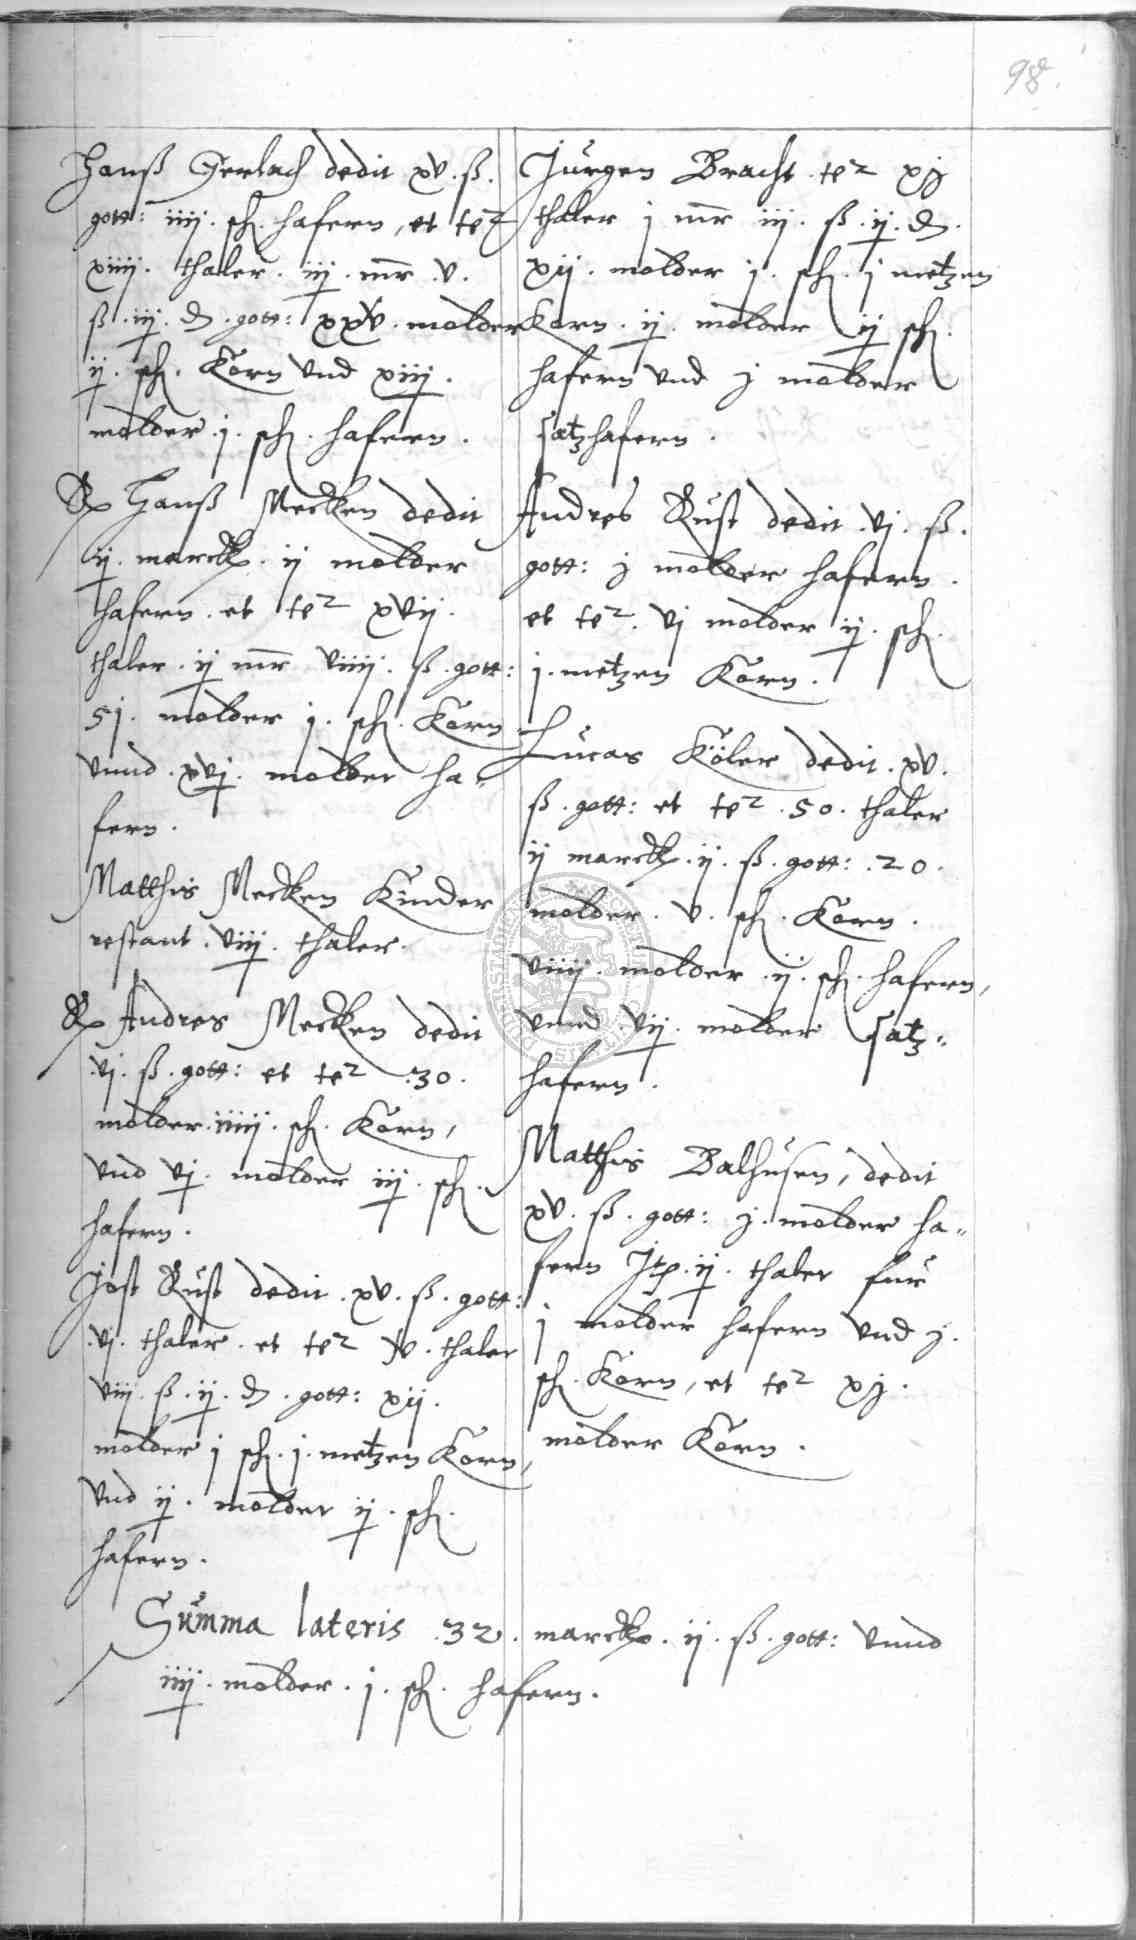 98.
Hanß Gerlach dedit xv. ß.
gott: iiij. sch. hafern, et te2
xiiij. thaler. iij. mr. v.
ß. iij. d. gott: xxv. molder
ij. sch. Korn vnd xiij.
molder j. sch. hafern.
Hanß Mecken dedit
ij. marck. ij molder
hafern. et te2 xvij.
thaler. ij mr viiij. ß. gott:
51. molder j. sch. Korn
vnnd. xvj. molder ha=
fern.
Matthis Mecken Kinder
restant. viij. thaler.
Andres Mecken dedit
.vj. ß. gott: et te2 30.
molder. iiiij. sch. Korn,
vnd vj. molder iij. sch.
hafern.
Jost Rust dedit. xv. ß. gott:
.vj. thaler. et te2 . thaler
viij. ß. ij. d. gott: xij.
molder j sch. j. metzen Korn,
vnd ij. molder ij. sch.
hafern.
Jürgen Bracht te2 xj
thaler j mr iij. ß. ij. d.
xij. molder j. sch. j metzen
Korn. ij. molder ij sch.
hafern vnd j molder
satzhafern.
Andres Rust dedit. vj. ß.
gott: j molder hafern.
et te2. vj molder ij. sch.
j. metzen Korn.
Lucas Köler dedit. xv.
ß. gott: et te2. 50. thaler
ij marck. ij. ß. gott: .20.
molder. v. sch. Korn.
viiij. molder. ij. sch. hafern,
vnnd vij. molder satz=
hafern.
Matthis Balhusen, dedit
xv. ß. gott: j. molder ha=
fern Jtp. ij. thaler für
j molder hafern vnd j.
sch. Korn, et te2 xj.
molder Korn.
Summa lateris .32. marck. ij. ß. gott: vnnd
iiij. molder. j. sch. hafern.